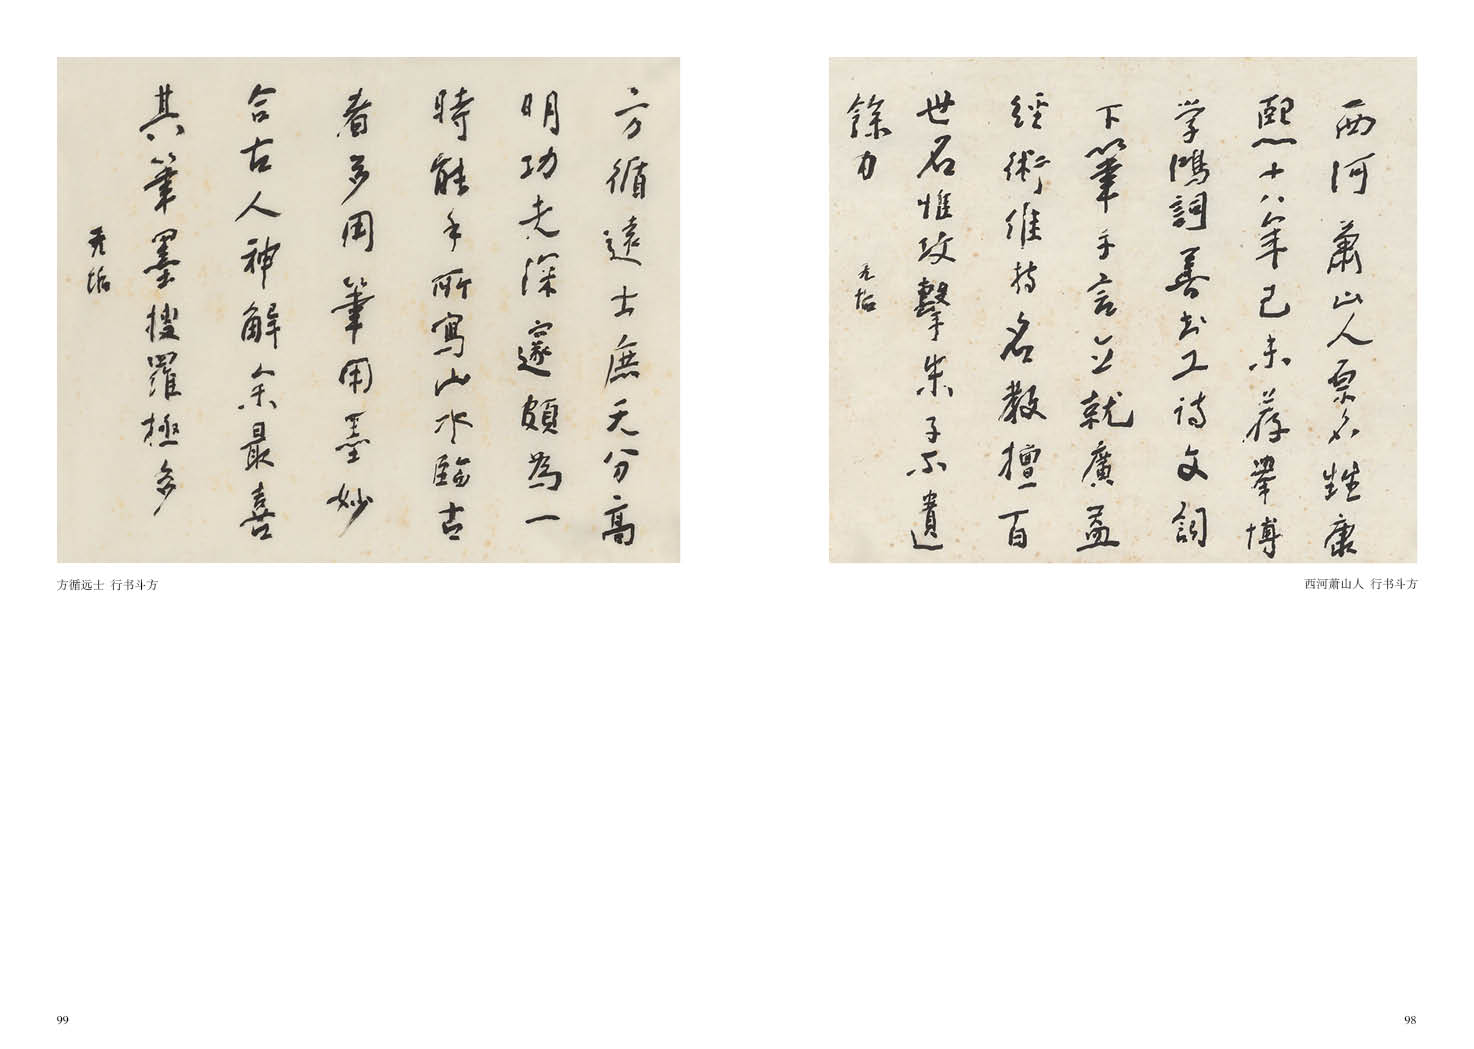 西河蕭山人原名甡康
熙十八年己未荐舉博
学鴻詞善書工詩文詞
下筆千言立就廣益
經術維持名教擅百
世名惟攻擊朱子不遺
餘力
无垢
西河萧山人 行书斗方
98
方循遠士庶天分高
明功夫深邃頗為一
時能手所寫山水臨古
者多用筆用墨妙
合古人神解余最喜
其筆墨搜羅極多
无垢
方循远士 行书斗方
99